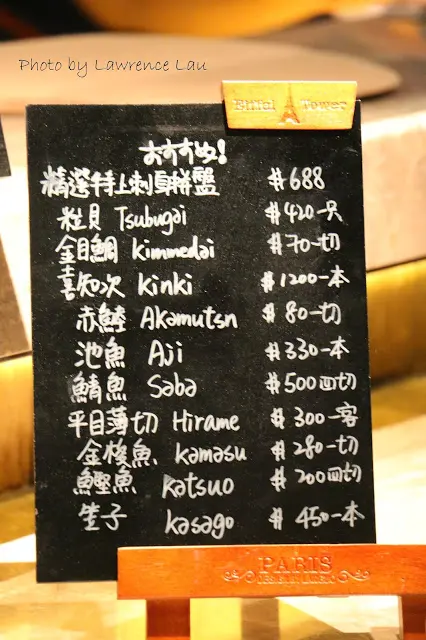 Photo by Lawrence Lau
Eiffel Tower
おすすめ!
精選特上刺身拼盤 #688
粒貝 Tsubugai #420一只
金目鯛 kimmedai #70一切
喜知次 kinki #1200一本
赤鯥 Akamutsn #80一切
池魚 Aji #330一本
鯖魚 Saba #500四切
平目薄切 Hirame #300一客
金梭魚 kamasu #280一切
鰹魚 katsuo #200四切
笠子 kasago #450一本
PARIS